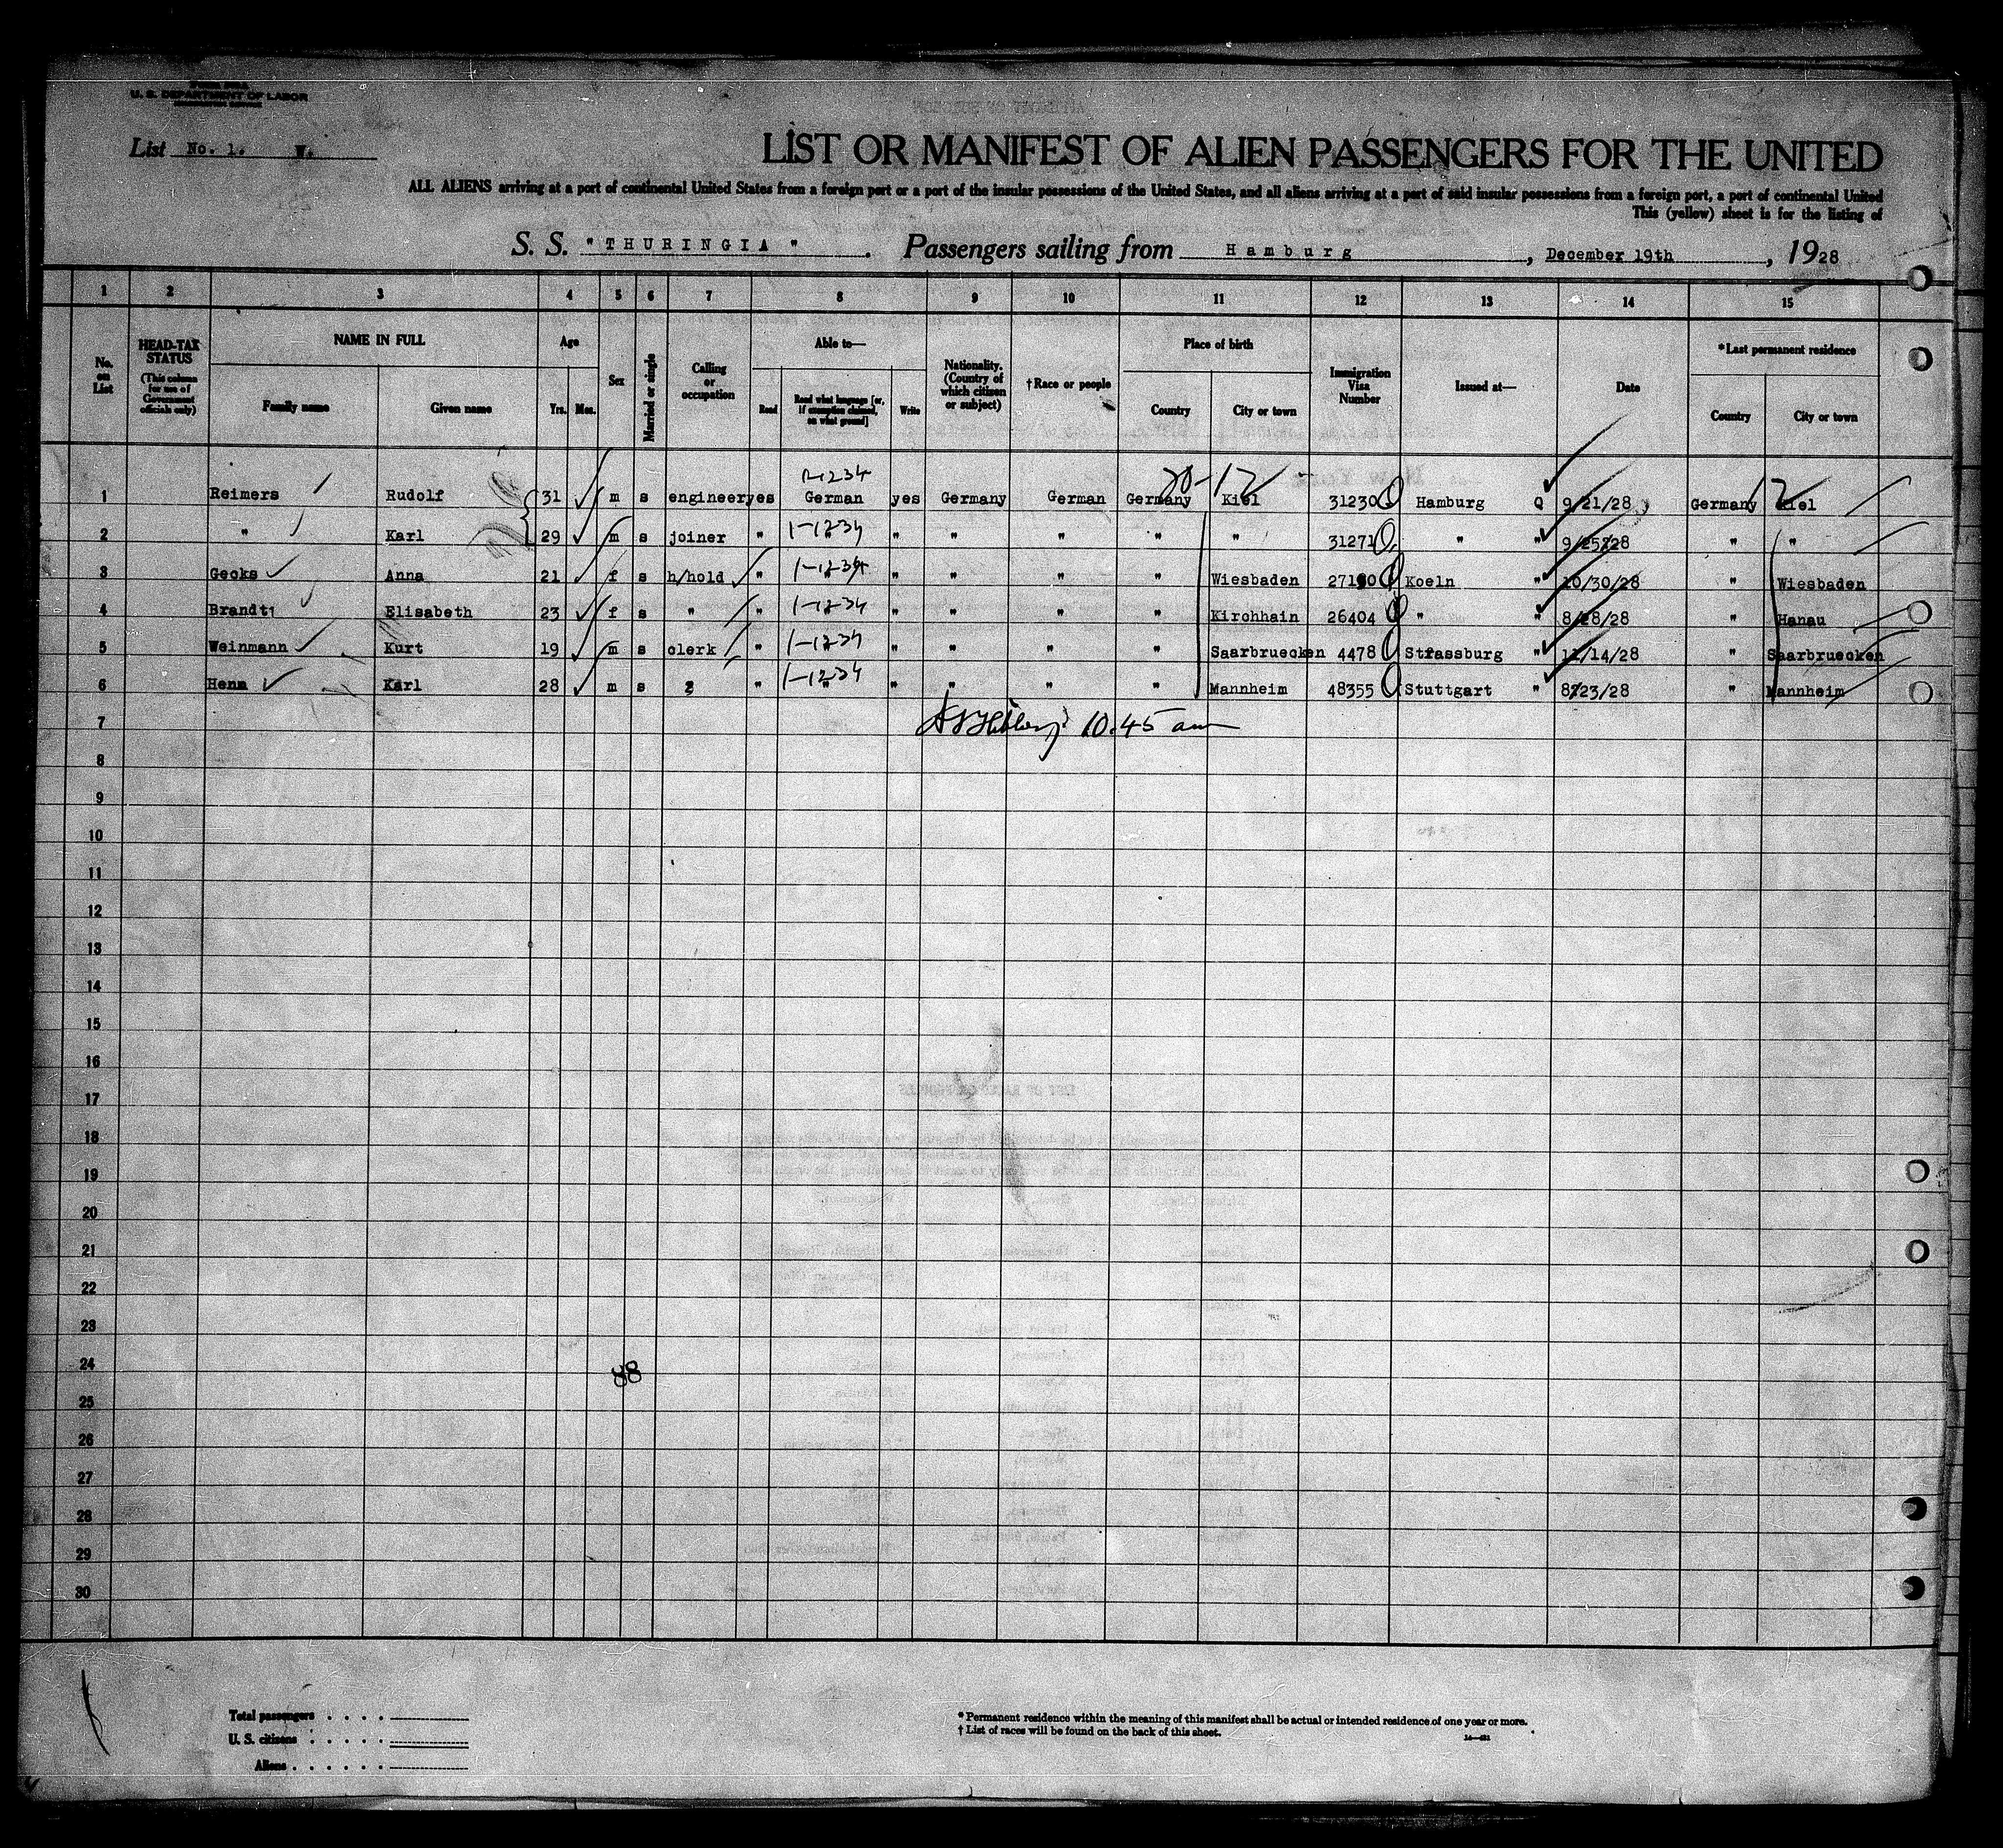 U. S. DEPARTMENT OF LABOR
List No. 1. W.
LIST OR MANIFEST OF ALIEN PASSENGERS FOR THE UNITED
ALL ALIENS arriving at a port of continental United States from a foreign port or a port of the insular possessions of the United States, and all aliens arriving at a port of said insular possessions from a foreign port, a port of continental United
This (yellow) sheet is for the listing of
S. S. "THURINGIA". Passengers sailing from Hamburg, December 19th, 1928
1 2 3 4 5 6 7 8 9 10 11 12 13 14 15
No. on List
HEAD-TAX STATUS (This column for use of Government officials only)
NAME IN FULL
Family name Given name
Age
Yrs. Mos.
Sex
Married or single
Calling or occupation
Able to—
Read Read what language [or, if exemption claimed, on what ground] Write
Nationality. (Country of which citizen or subject)
†Race or people
Place of birth
Country City or town
Immigration Visa Number
Issued at—
Date
*Last permanent residence
Country City or town
20-12 12
1-1234
1 Reimers Rudolf 31 m s engineer yes German yes Germany German Germany Kiel 31230 Hamburg Q 9/21/28 Germany Kiel
2 " Karl 29 m s joiner " 1-1234 " " " " " 31271 " " 9/25/28 " "
3 Gecks Anna 21 f s h/hold " 1-1234 " " " " Wiesbaden 27190 Koeln " 10/30/28 " Wiesbaden
4 Brandt Elisabeth 23 f s " " 1-1234 " " " " Kirchhain 26404 " " 8/28/28 " Hanau
5 Weinmann Kurt 19 m s clerk " 1-1234 " " " " Saarbruecken 4478 Strassburg " 11/14/28 " Saarbruecken
6 Henn Karl 28 m s " 1-1234 " " " " Mannheim 48355 Stuttgart " 8/23/28 " Mannheim
7 10.45 am
8
9
10
11
12
13
14
15
16
17
18
19
20
21
22
23
24 88
25
26
27
28
29
30
Total passengers . . . .
U. S. citizens . . . . .
Aliens . . . . . .
* Permanent residence within the meaning of this manifest shall be actual or intended residence of one year or more.
† List of races will be found on the back of this sheet.